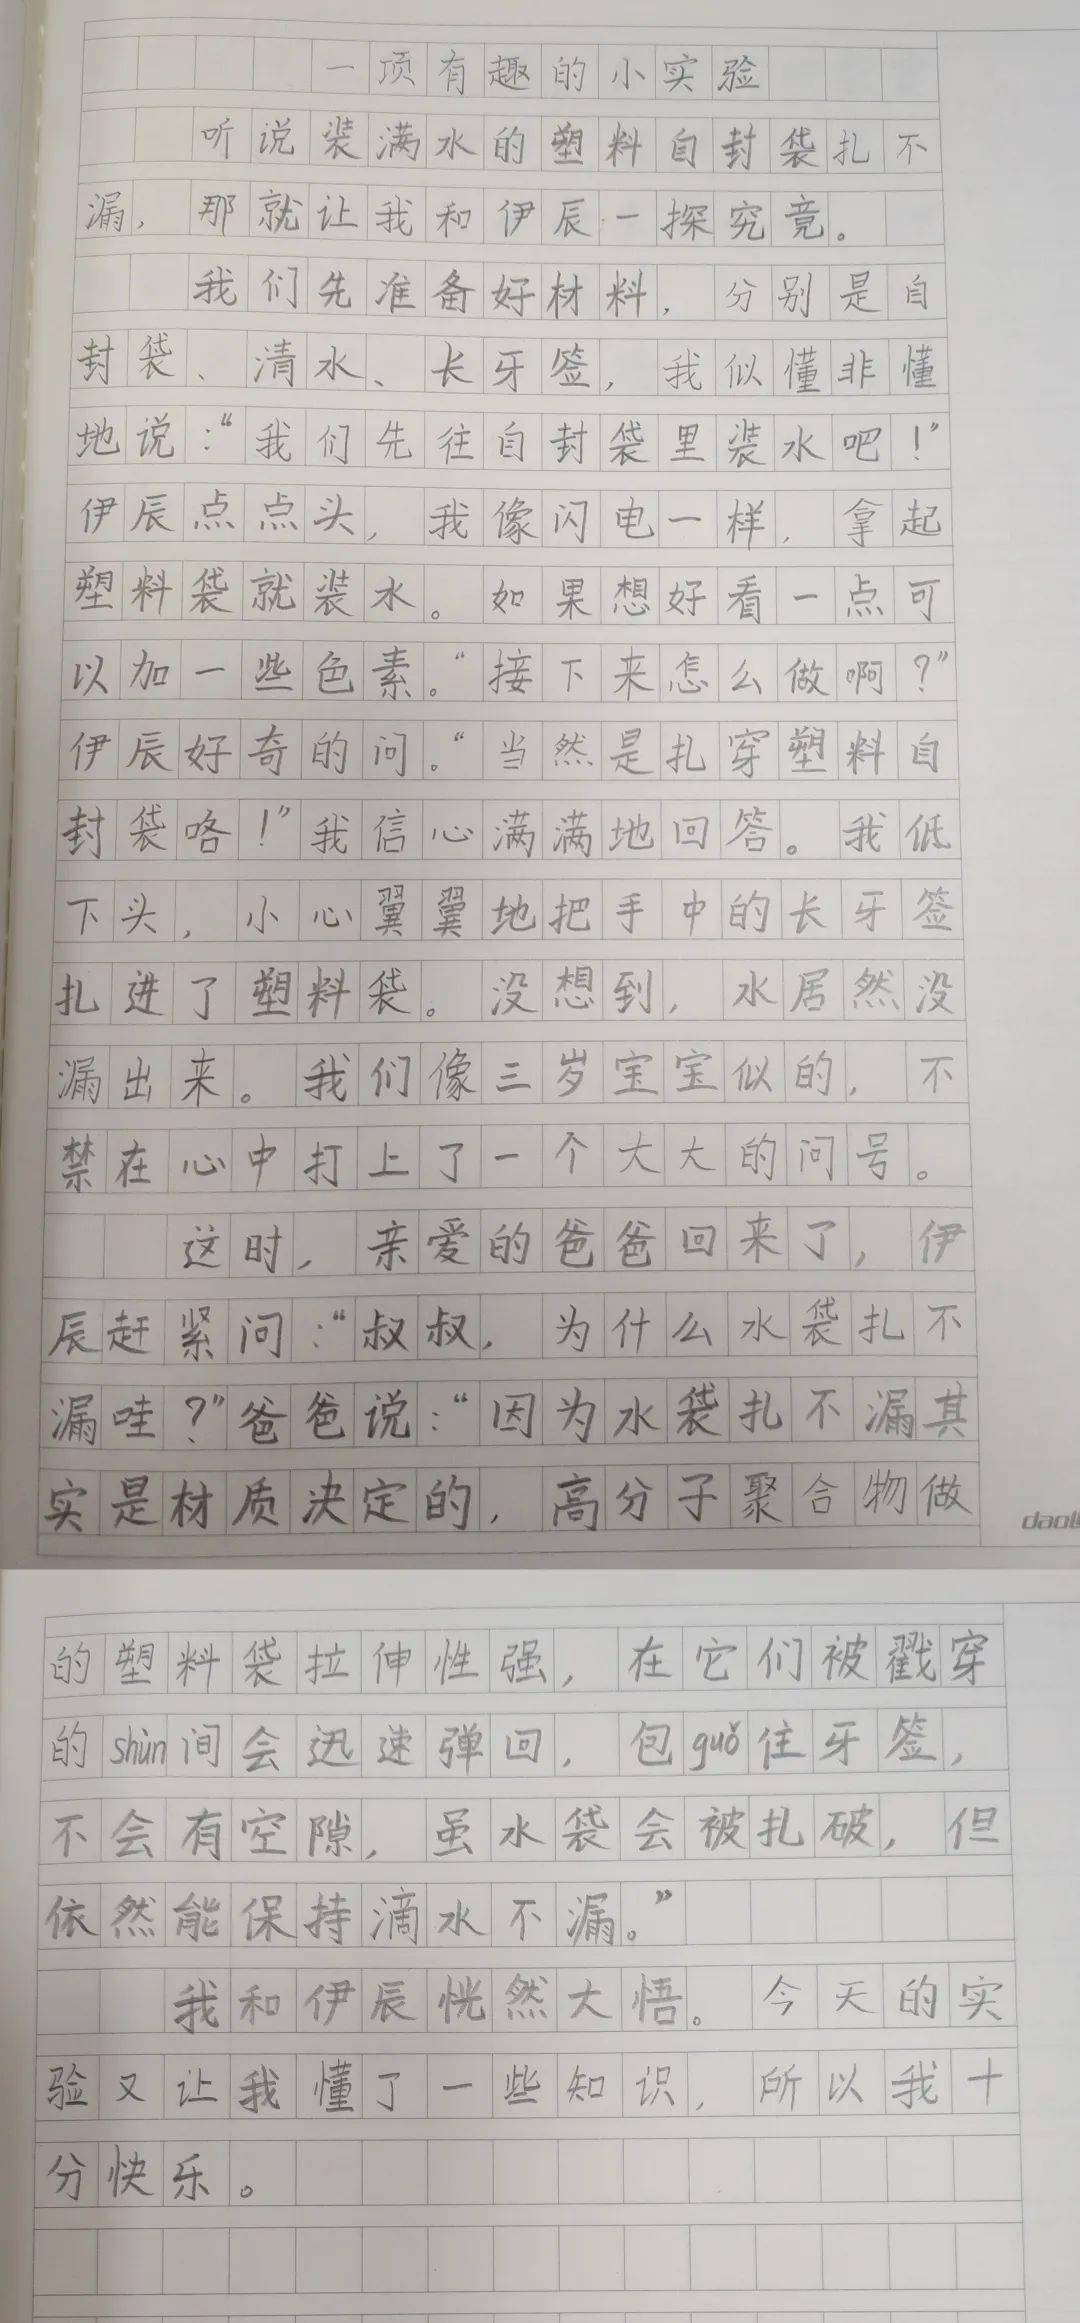 一项有趣的小实验
听说装满水的塑料自封袋扎不
漏，那就让我和伊辰一探究竟。
我们先准备好材料，分别是自
封袋、清水、长牙签，我似懂非懂
地说：“我们先往自封袋里装水吧！”
伊辰点点头，我像闪电一样，拿起
塑料袋就装水。如果想好看一点可
以加一些色素。“接下来怎么做啊？”
伊辰好奇的问。“当然是扎穿塑料自
封袋咯！”我信心满满地回答。我低
下头，小心翼翼地把手中的长牙签
扎进了塑料袋。没想到，水居然没
漏出来。我们像三岁宝宝似的，不
禁在心中打上了一个大大的问号。
这时，亲爱的爸爸回来了，伊
辰赶紧问：“叔叔，为什么水袋扎不
漏哇？”爸爸说：“因为水袋扎不漏其
实是材质决定的，高分子聚合物做
daoli
的塑料袋拉伸性强，在它们被戳穿
的shùn间会迅速弹回，包guǒ住牙签，
不会有空隙，虽水袋会被扎破，但
依然能保持滴水不漏。”
我和伊辰恍然大悟。今天的实
验又让我懂了一些知识，所以我十
分快乐。